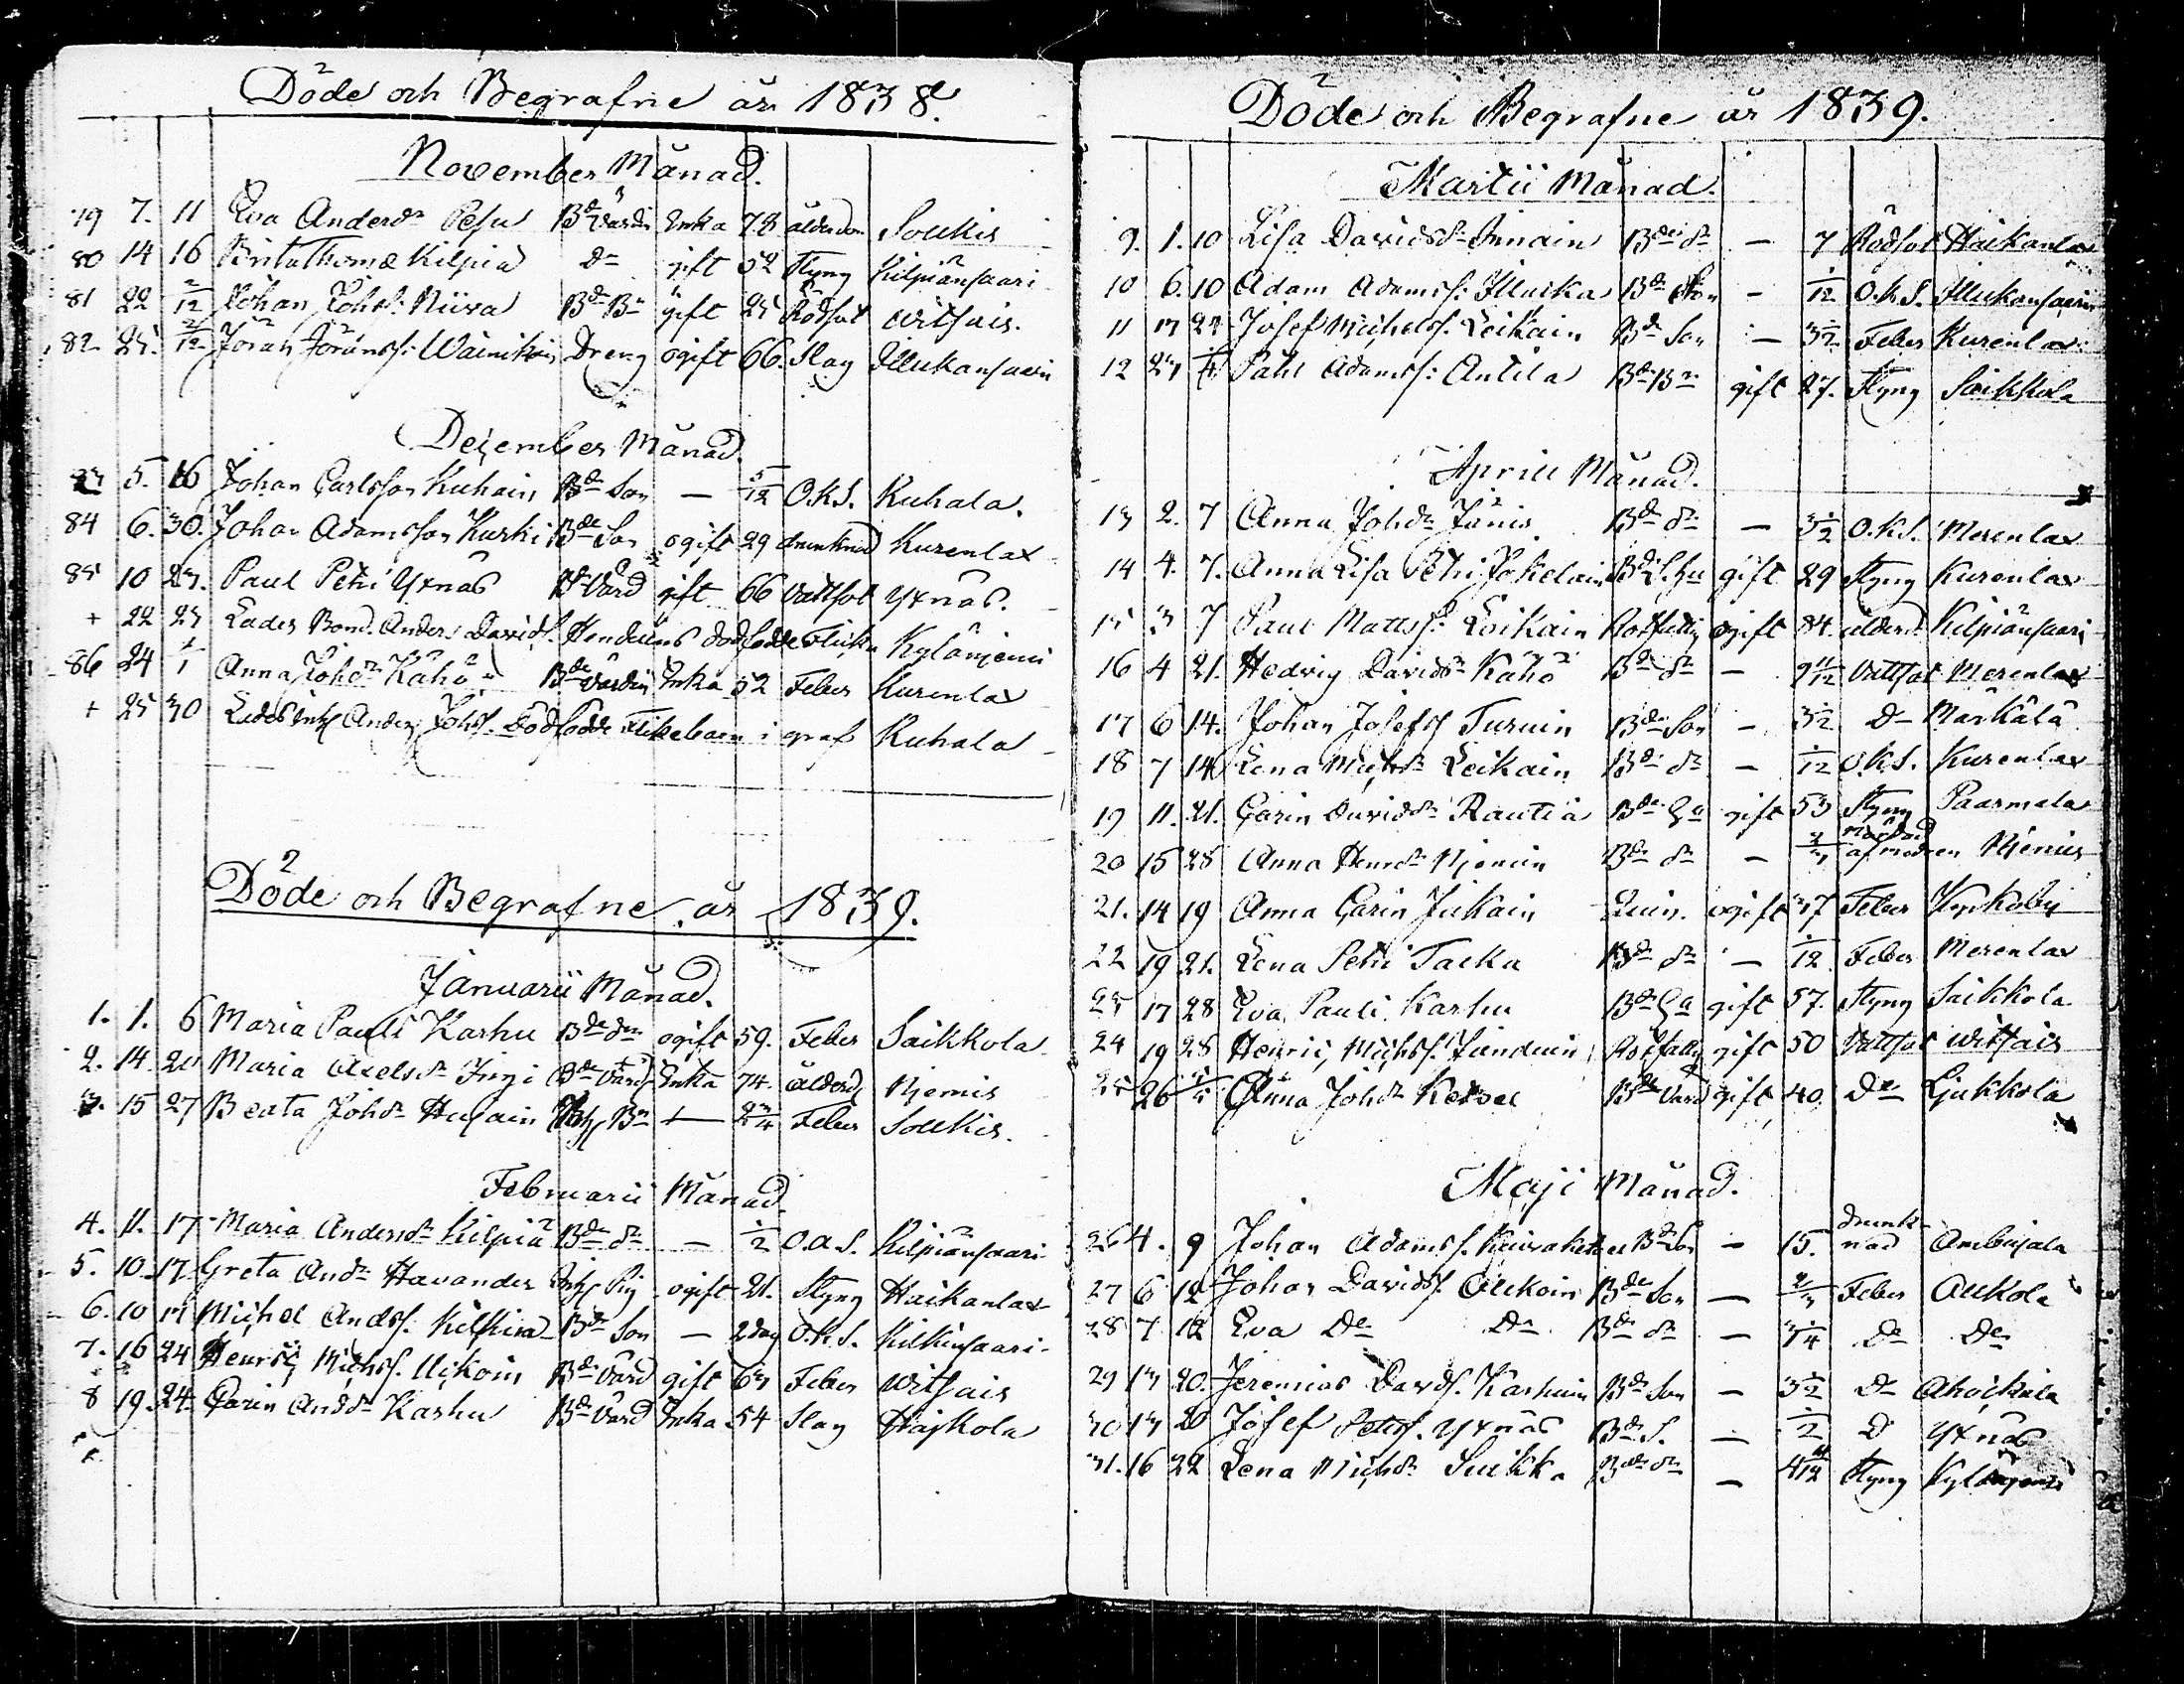 Döde och Begrafne år 1838.
November Månad.
79 7. 11 Eva Andersdr Pesu Bde Värdin Enka 78 ålderdom Soukis
80 14 16 Brita Thomæ Kilpiä Dn gift 52 Styng Kilpiänsaari
81 22 2/12 Johan Johs: Niiva Bde Bn gift 25 Rödsot Witsais.
82 25. 2/12 Jöran Jöranss: Wainikain Dreng ogift 66. Slag Illukansaari
December Månad.
5. 16 Johan Carlsson Kuhain Bde Son — 5/12 O.K.S. Kuhala.
84 6. 30. Johan Adamsson Kurki Bde Son ogift 29 drunknad Kurenlax
85 10 23. Paul Petri Yxnäs Bde Värd gift 66 Vattsot Yxnäs.
+ 22 23 Lades Bond. Anders Davids. dödfödde Flicka Kylänjemi
86 24 1/1 Anna Johdr Kähö Bde Värdin Enka 52 Feber Kurenlax
+ 25 30 Lades Inh Anders Johs. Dödfödde Flikebarn i graf Kuhala
Döde och Begrafne år 1839.
Januarii Månad.
1. 1. 6 Maria Pauli Karhu Bde dr ogift 59. Feber Saikkola
2. 14. 20 Maria Axelsdr Bde Värd Enka 74. ålderd Njemis
3. 15 27 Beata Johdr Husain Inh Bn — 2 3/4 Feber Soukis.
Februarii Månad.
4. 11. 17 Maria Andersdr Kilpiä Bde dr — 1/2 O.a.S. Kilpiänsaari
5. 10. 17 Greta Anddr Havander Inh Pig ogift 21. Styng Haikanlax
6. 10 17 Michel Ands. Kilkira Bde Son — 2 dag O.K.S. Kilkinsaari
7. 16 24 Henric Michs. Uckoin Bde Värd gift 63 Feber Witsais
8 19. 24. Carin Anddr Karhu Bde Värd Enka 54 Slag Hajkola
Döde och Begrafne år 1839.
Martii Månad.
9. 1. 10 Lisa Davidsdr Innain Bde dr — 7 Rödsot Haikanlax
10 6. 10 Adam Adamss: Illuika Bde Son — 1/12 O.K.S. Illukansaari
11 17 24 Josef Michelss. Leikain Bde Son — 3 1/2 Feber Kurenlax
12 23 Påhl Adamss: Antila Bde Bn gift 27. Styng Saikkola
Aprill Månad.
13 2. 7 Anna Johdr Jänis Bde dr — 3 1/2 O.K.S. Merenlax
14 4. 7. Anna Lisa Petri Jokelain gift 29 Styng Kurenlax
15 3 7 Paul Mattss. Loikain Rotfattig ogift 84. ålderd Kilpiänsaari
16 4 21. Hedvig Davidsdr Kähö Bde dr — 9 11/12 Vattsot Merenlax
17 6 14. Johan Josefs Turuin Bde Son — 3 1/2 Dn Märkälä
18 7 14 Lena Michdr Leikain Bde dr — 1/12 O.K.S. Kurenlax
19 11. 21. Carin Davidsdr Rautia Bde Ea gift 53 Styng Paarmala
20 15 28 Anna Henrdr Njemin Bde dr — mördad af modren Njemis
21. 14 19 Anna Carin Jukain ogift 37 Feber Kyrkoby
22 19 21. Lena Petri Tacka Bde dr — 1/12 Feber Merenlax
23 17 28 Eva Pauli Karhu gift 57. Styng Saikkola
24 19 28 Henric Michss. Rotfattig gift 50 Vattsot Witsais
25 26 Anna Johdr Bde Värd gift 40 Dn Ljukkola
Maji Månad.
26 4. 9 Johan Adamss. Bde Son — 15. drunknad Ambujala
27 6 12 Johan Davids. Aukoin Bde Son — 2/3 Feber Aukola
28 7 12 Eva Dn Dn Bde dr — 3 1/4 Dn Dn
29 13 20. Jeremias Davds. Karhuin Bde Son — 3 1/2 Dn Ahoikala
30 13 20 Josef Petters. Yxnäs Bde S. — 1/2 D Yxnäs
31. 16 22 Lena Michdr Suikka Bde dr — 4 4/12 Styng Kylänjemi